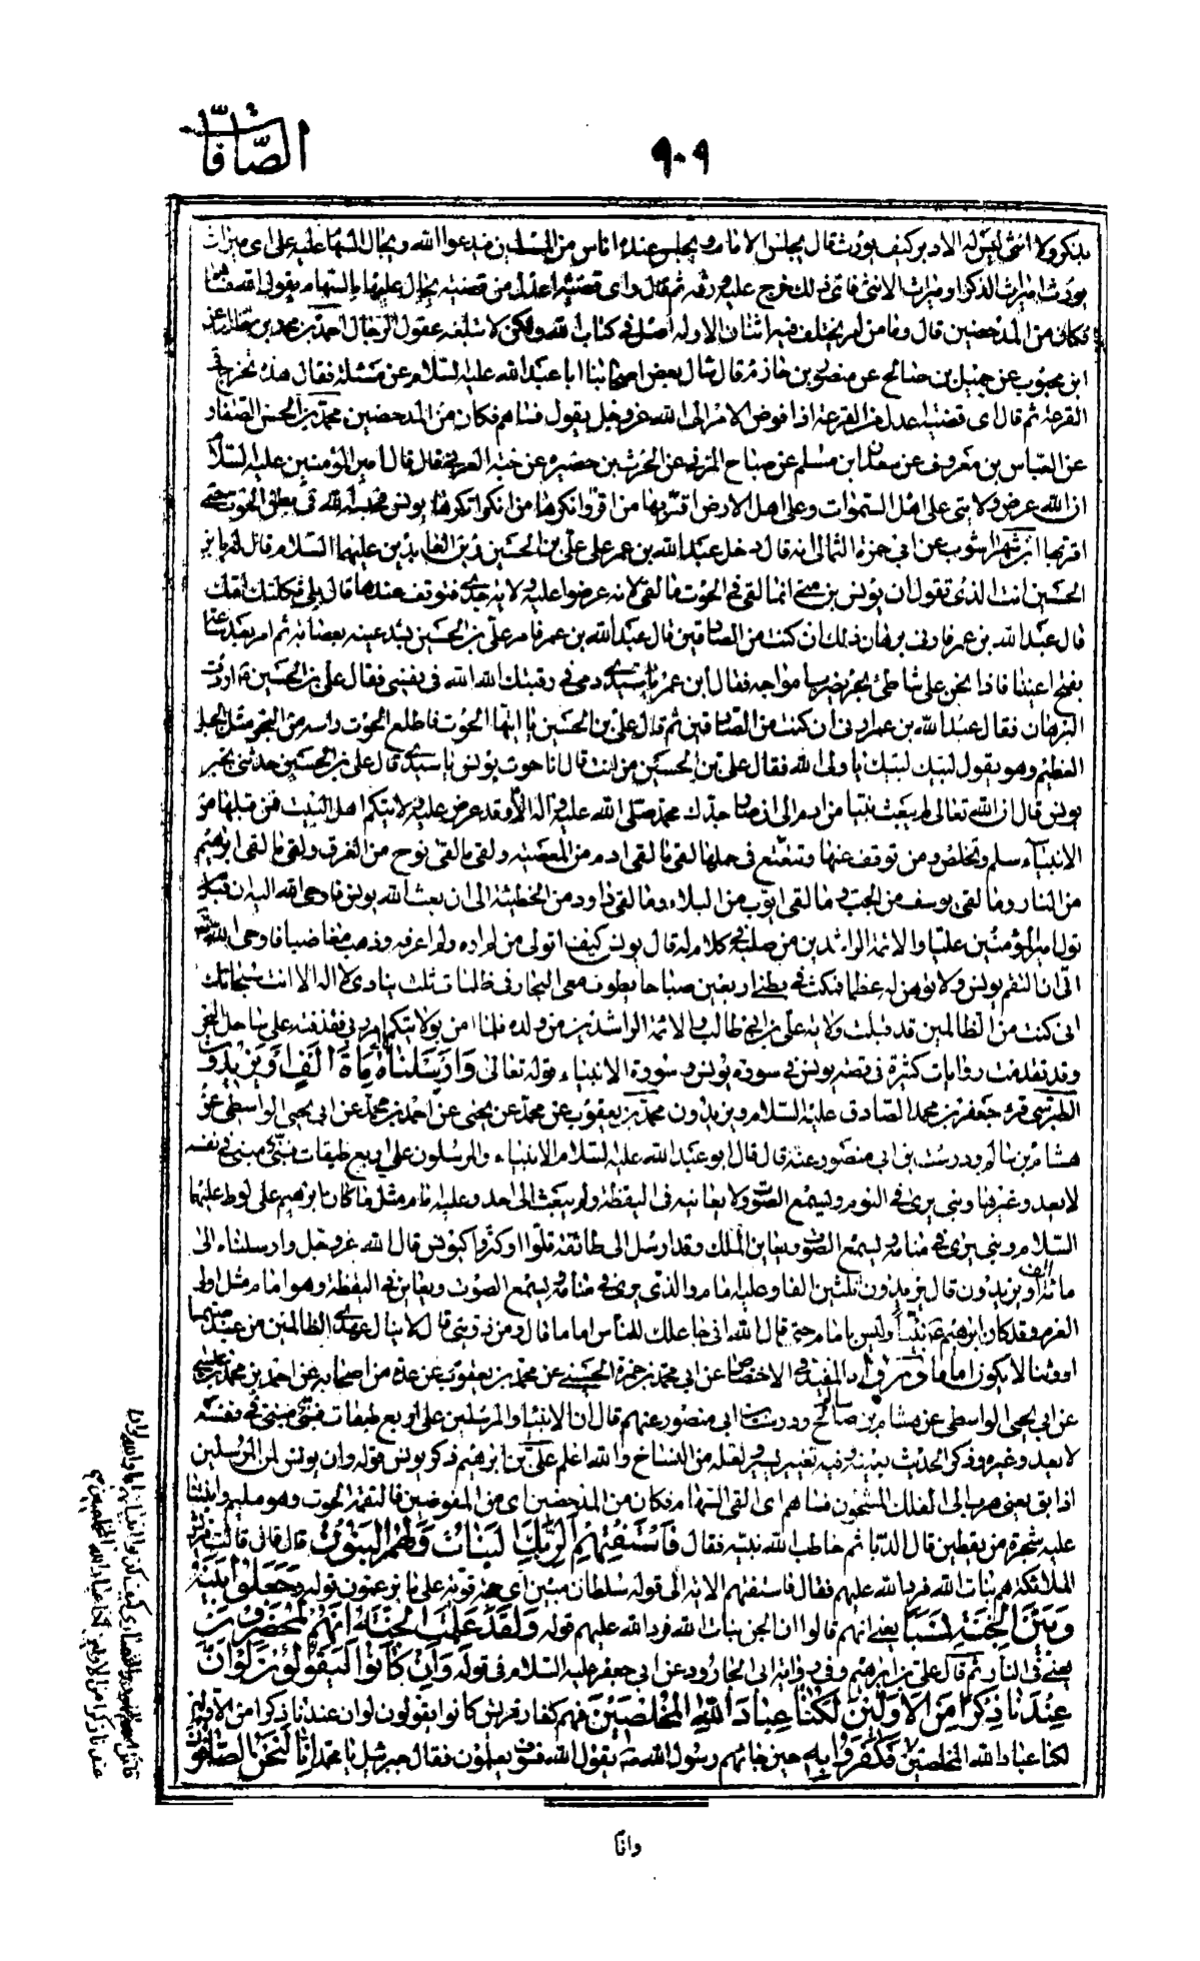 الصافات
٩٠٩
بذكر ولا انثى ليس له الا دبر كيف يورث قال يجلس الامام ويجلس عنده اناس من المسلمين فيدعوا الله ويجال السهام عليه على اى ميراث
يورث اميراث الذكر او ميراث الانثى فاى ذلك خرج عليه ورثه ثم قال واى قضية اعدل من قضية يجال عليها بالسهام يقول الله فساهم
فكان من المدحضين قال وما من امر يختلف فيه اثنان الا وله اصل فى كتاب الله ولكن لا تبلغه عقول الرجال احمد بن محمد بن خالد عن
ابن محبوب عن جميل بن صالح عن منصور بن حازم قال سال بعض اصحابنا ابا عبد الله عليه السلام عن مسئلة فقال هذه تخرج فى
القرعة ثم قال اى قضية اعدل من القرعة اذا فوض الامر الى الله عز وجل يقول فساهم فكان من المدحضين محمد بن الحسن الصفار
عن العباس بن معروف عن سعدان بن مسلم عن صباح المزنى عن الحرث بن حضيرة عن حبة العرنى قال قال امير المؤمنين عليه السلام
ان الله عرض ولايتى على اهل السموات وعلى اهل الارض اقر بها من اقر وانكرها من انكر انكرها يونس فحبسه الله فى بطن الحوت حتى
اقر بها ابن شهراشوب عن ابى حمزة الثمالى انه قال دخل عبد الله بن عمر على على بن الحسين زين العابدين عليهما السلام قائل له يا بن
الحسين انت الذى تقول ان يونس بن متى انما لقى فى الحوت ما لقى لانه عرضوا عليه ولاية جدى فتوقف عندها قال بلى ثكلتك امك
قال عبد الله بن عمر فارنى برهان ذلك ان كنت من الصادقين قال عبد الله بن عمر فامر على بن الحسين بشد عينيه بعصابة ثم امر بعد ساعة
بفتح اعيننا فاذا نحن على شاطئ بحر يضرب امواجه فقال ابن عمر يا سيدى دمى فى رقبتك الله الله فى نفسى فقال على بن الحسين اردت
البرهان فقال عبد الله بن عمر ارنى ان كنت من الصادقين ثم قال على بن الحسين يا ايتها الحوت فاطلع الحوت راسه من البحر مثل الجبل
العظيم وهو يقول لبيك لبيك يا ولى الله فقال على بن الحسين من انت قال انا حوت يونس يا سيدى قال على بن الحسين حدثنى بخبر
يونس قال ان الله تعالى لم يبعث نبيا من ادم الى ان صار جدك محمد صلى الله عليه واله الا وقد عرض عليه ولايتكم اهل البيت فمن قبلها من
الانبياء سلم وتخلص ومن توقف عنها وتتعتع فى حملها لقى ما لقى ادم من المعصية ولقى ما لقى نوح من الغرق ولقى ما لقى ابرهيم
من النار وما لقى يوسف من الجب وما لقى ايوب من البلاء وما لقى داود من الخطيئة الى ان بعث الله يونس فاوحى الله اليه ان يا يونس
تول امير المؤمنين عليا والائمة الراشدين من صلبه فى كلام له قال يونس كيف اتولى من لم اره ولم اعرفه وذهب مغاضبا فاوحى الله تعالى
الى ان التقم يونس ولا توهن له عظما فمكث فى بطنى اربعين صباحا يطوف معى البحار فى ظلمات ثلث ينادى لا اله الا انت سبحانك
انى كنت من الظالمين قد قبلت ولاية على بن ابى طالب والائمة الراشدين من ولده فلما امن بولايتكم امرنى فقذفته على ساحل البحر
وقد تقدمت روايات كثيرة فى قصة يونس فى سورة يونس وسورة الانبياء قوله تعالى وَاَرْسَلْنَاهُ اِلى مِاَةِ اَلْفٍ اَوْ يَزِيدُونَ
الطبرسى قرء جعفر بن محمد الصادق عليه السلام ويزيدون محمد بن يعقوب عن محمد بن يحيى عن احمد بن محمد عن ابى يحيى الواسطى عن
هشام بن سالم ودرست بن ابى منصور عنه قال قال ابو عبد الله عليه السلام الانبياء والمرسلون على اربع طبقات فنبى منبئ فى نفسه
لا يعد وغيرها ونبى يرى فى النوم ويسمع الصوت ولا يعاينه فى اليقظة ولم يبعث الى احد وعليه امام مثل ما كان ابرهيم على لوط عليهما
السلام ونبى يرى فى منامه ويسمع الصوت ويعاين الملك وقد ارسل الى طائفة قلوا او كثروا كيونس قال الله عز وجل وارسلناه الى
مائة الف او يزيدون قال يزيدون ثلثين الفا وعليه امام والذى يرى فى منامه ويسمع الصوت ويعاين فى اليقظة وهو امام مثل اولى
العزم وقد كان ابرهيم عه نبيا وليس بامام حتى قال الله انى جاعلك للناس اماما قال ومن ذريتى قال لا ينال عهدى الظالمين من عبد صنما
او وثنا لا يكون اماما ورواه المفيد فى الاختصاص عن ابى محمد بن حمزة الحسينى عن محمد بن يعقوب عن عدة من اصحابه عن احمد بن محمد بن عيسى
عن ابى يحيى الواسطى عن هشام بن سالم ودرست بن ابى منصور عنهم قال ان الانبياء والمرسلين على اربع طبقات فنبى منبئ فى نفسه
لا يعد وغيره وذكر الحديث بعينه وفيه تغيير يسير لعله من النساخ والله اعلم على بن ابرهيم ذكر يونس قوله وان يونس لمن المرسلين
اذ ابق يعنى هرب الى الفلك المشحون فساهم اى القى السهام فكان من المدحضين اى من المغوصين فالتقمه الحوت وهو مليم وانبتنا
عليه شجرة من يقطين قال الدبا ثم خاطب الله نبيه فقال فَاسْتَفْتِهِمْ اَلِرَبِّكَ الْبَنَاتُ وَلَهُمُ الْبَنُونَ قال قال قالت قريش
الملائكة هم بنات الله فرد الله عليهم فقال فاستفتهم الاية الى قوله سلطان مبين اى حجة قوية على ما يزعمون قوله وَجَعَلُوا بَيْنَهُ
وَبَيْنَ الْجِنَّةِ نَسَبًا يعنى انهم قالوا ان الجن بنات الله فرد الله عليهم قوله وَلَقَدْ عَلِمَتِ الْجِنَّةُ اِنَّهُمْ لَمُحْضَرُونَ
يعنى فى النار ثم قال على بن ابرهيم وفى رواية ابى الجارود عن ابى جعفر عليه السلام فى قوله وَاِنْ كَانُوا لَيَقُولُونَ لَوْ اَنَّ
عِنْدَنَا ذِكْرًا مِنَ الْاَوَّلِينَ لَكُنَّا عِبَادَ اللهِ الْمُخْلَصِينَ فهم كفار قريش كانوا يقولون لو ان عندنا ذكرا من الاولين
لكنا عباد الله المخلصين فَكَفَرُوا بِهِ حين جائهم رسول الله ص يقول الله فسوف يعلمون فقال جبرئيل يا محمد اِنَّا لَنَحْنُ الصَّافُّونَ
وانا